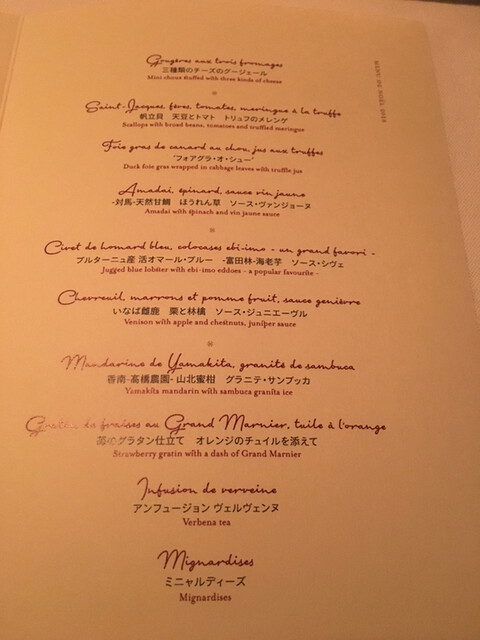 Gougères aux trois fromages
三種類のチーズのグージェール
Mini choux stuffed with three kinds of cheese
MENU DE NOËL 2018
Saint-Jacques, fèves, tomates, meringue à la truffe
帆立貝 天豆とトマト トリュフのメレンゲ
Scallops with broad beans, tomatoes and truffled meringue
Foie gras de canard au chou, jus aux truffes
"フォアグラ・オ・シュー"
Duck foie gras wrapped in cabbage leaves with truffle jus
Amadai, épinard, sauce vin jaune
-対馬-天然甘鯛 ほうれん草 ソース・ヴァンジョーヌ
Amadai with spinach and vin jaune sauce
Civet de homard bleu, colocases ebi-imo - un grand favori -
ブルターニュ産 活オマール・ブルー -富田林-海老芋 ソース・シヴェ
Jugged blue lobster with ebi-imo eddoes - a popular favourite -
Chevreuil, marrons et pomme fruit, sauce genièvre
いなば雌鹿 栗と林檎 ソース・ジュニエーヴル
Venison with apple and chestnuts, juniper sauce
Mandarine de Yamakita, granité de sambuca
香南-高橋農園- 山北蜜柑 グラニテ・サンブッカ
Yamakita mandarin with sambuca granita ice
Gratin de fraises au Grand Marnier, tuile à l'orange
苺のグラタン仕立て オレンジのチュイルを添えて
Strawberry gratin with a dash of Grand Marnier
Infusion de verveine
アンフュージョン ヴェルヴェンヌ
Verbena tea
Mignardises
ミニャルディーズ
Mignardises